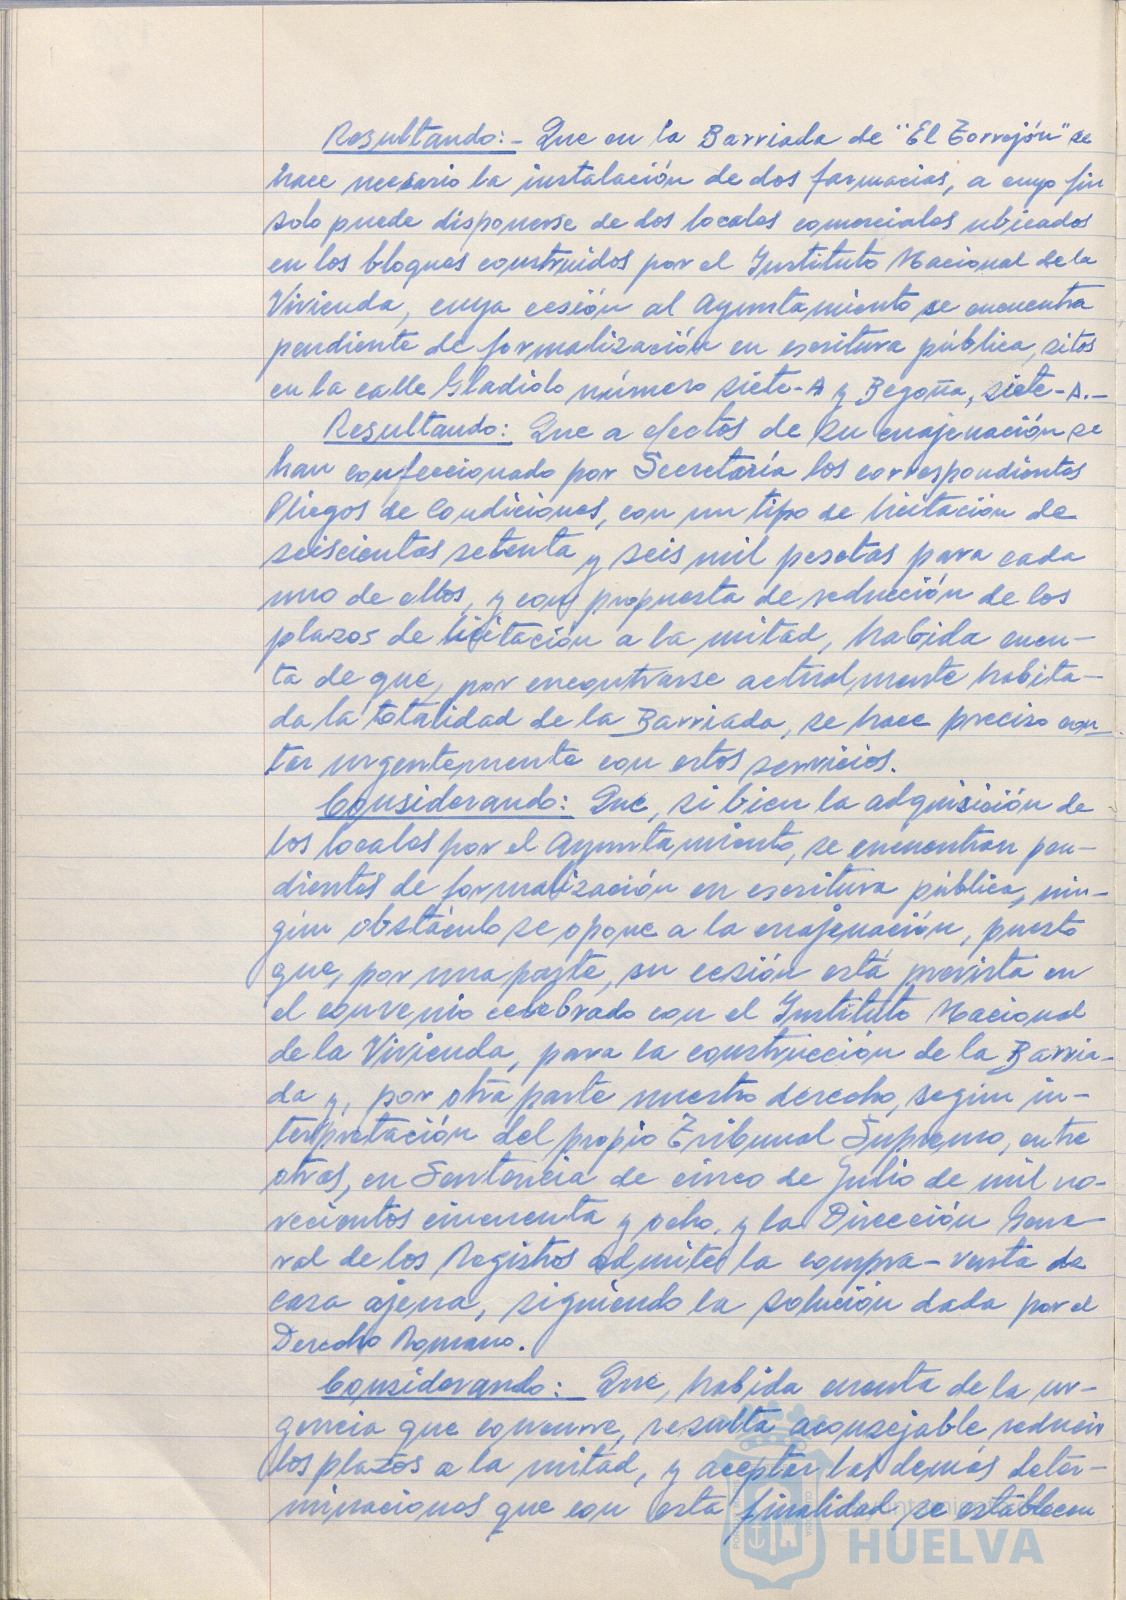 Resultando:- Que en la Barriada de "El Torrejón" se
hace necesario la instalación de dos farmacias, a cuyo fin
solo puede disponerse de dos locales comerciales ubicados
en los bloques construidos por el Instituto Nacional de la
Vivienda, cuya cesión al Ayuntamiento se encuentra
pendiente de formalización en escritura pública, sitos
en la calle Gladiolo número siete-A y Begoña, siete-A.-
Resultando: Que a efectos de su enajenación se
han confeccionado por Secretaría los correspondientes
Pliegos de Condiciones, con un tipo de licitación de
seiscientas setenta y seis mil pesetas para cada
uno de ellos, y con propuesta de reducción de los
plazos de licitación a la mitad, habida cuen-
ta de que, por encontrarse actualmente habita-
da la totalidad de la Barriada, se hace preciso con-
tar urgentemente con estos servicios.
Considerando: Que, si bien la adquisición de
los locales por el Ayuntamiento, se encuentran pen-
dientes de formalización en escritura pública, nin-
gún obstáculo se opone a la enajenación, puesto
que, por una parte, su cesión está prevista en
el convenio celebrado con el Instituto Nacional
de la Vivienda, para la construcción de la Barria-
da y, por otra parte nuestro derecho, según in-
terpretación del propio Tribunal Supremo, entre
otras, en Sentencia de cinco de Julio de mil no-
vecientos cincuenta y ocho, y la Dirección Gene-
ral de los Registros admite la compra-venta de
cosa ajena, siguiendo la solución dada por el
Derecho Romano.
Considerando: Que, habida cuenta de la ur-
gencia que concurre, resulta aconsejable reducir
los plazos a la mitad, y aceptar las demás deter-
minaciones que con esta finalidad se establecen
Ayuntamiento
HUELVA